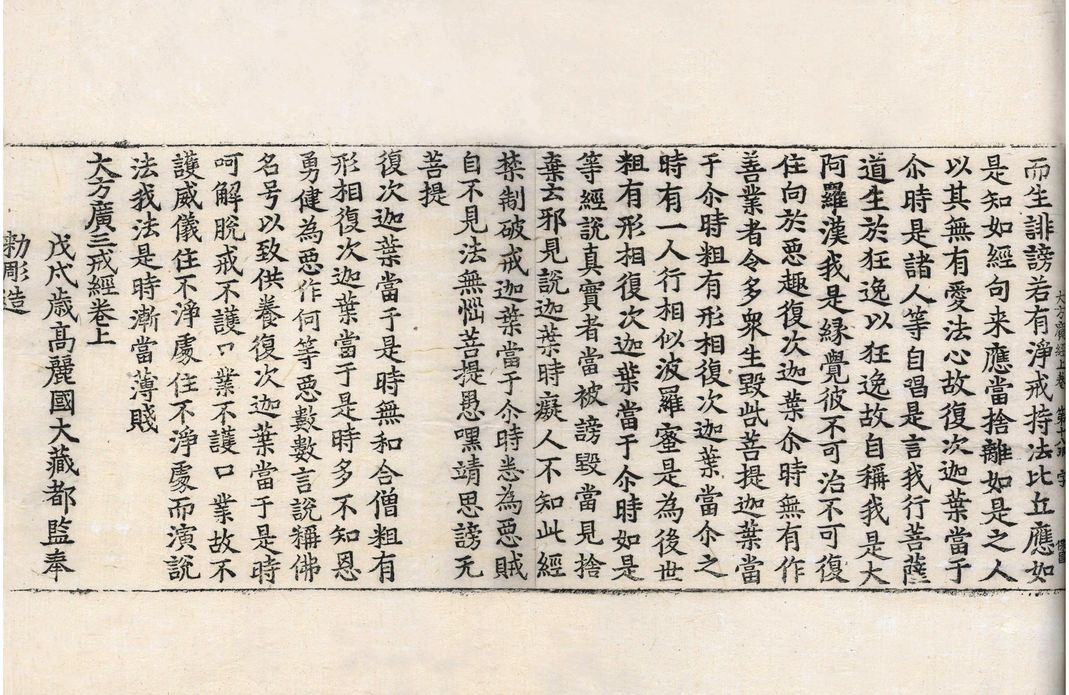 大方廣經上卷 第十八張 字
而生誹謗若有淨戒持法比丘應如
是知如經句来應當捨離如是之人
以其無有愛法心故復次迦葉當于
尒時是諸人等自唱是言我行菩薩
道生於狂逸以狂逸故自稱我是大
阿羅漢我是縁覺彼不可治不可復
住向於惡趣復次迦葉尒時無有作
善業者令多衆生毀呰菩提迦葉當
于尒時粗有形相復次迦葉當尒之
時有一人行相似波羅蜜是為後世
粗有形相復次迦葉當于尒時如是
等經說真實者當被謗毀當見捨
棄去邪見說迦葉時癡人不知此經
禁制破戒迦葉當于尒時悉為惡賊
自不見法無惱菩提愚嘿靖思謗无
菩提
復次迦葉當于是時無和合僧粗有
形相復次迦葉當于是時多不知恩
勇健為惡作何等惡數數言說稱佛
名号以致供養復次迦葉當于是時
呵解脫戒不護口業不護口業故不
護威儀住不淨處住不淨處而演說
法我法是時漸當薄賤
大方廣三戒經卷上
戊戌歳髙麗國大藏都監奉
勅彫造